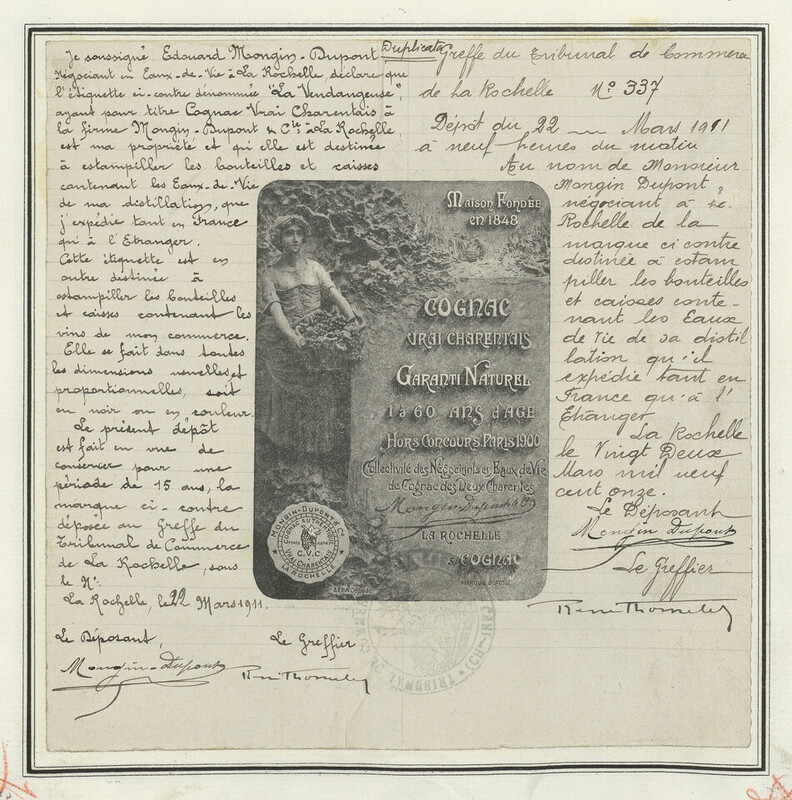 Je soussigné Edouard Mongin-Dupont
négociant en Eaux-de-Vie à La Rochelle déclare que
l'étiquette ci-contre dénommée "La Vendangeuse",
ayant pour titre Cognac Vrai Charentais à
la firme Mongin-Dupont & Cie à La Rochelle,
est ma propriété et qu'elle est destinée
à estampiller les bouteilles et caisses
contenant les Eaux-de-Vie
de ma distillation, que
j'expédie tant en France
qu'à l'Etranger.
Cette étiquette est en
outre destinée à
estampiller les bouteilles
et caisses contenant les
vins de mon commerce.
Elle se fait dans toutes
les dimensions usuelles et
proportionnelles, soit
en noir ou en couleur.
Le présent dépôt
est fait en vue de
conserver pour une
période de 15 ans, la
marque ci-contre
déposée au Greffe du
Tribunal de Commerce
de La Rochelle, sous
le N°:
La Rochelle, le 22 Mars 1911.
Le Déposant,
Le Greffier
Mongin-Dupont
Duplicata
Greffe du Tribunal de Commerce
de La Rochelle N° 337
Dépôt du 22 Mars 1911
à neuf heures du matin
Au nom de Monsieur
Mongin Dupont,
négociant à La
Rochelle de la
marque ci contre
destinée à estam
piller les bouteilles
et caisses conte-
nant les Eaux
de Vie de sa distil
lation qu'il
expédie tant en
France qu'à l'
Etranger
La Rochelle
le Vingt Deux
Mars mil neuf
cent onze.
Le Déposant
Mongin Dupont
Le Greffier
Maison Fondée
en 1848
COGNAC
VRAI CHARENTAIS
GARANTI NATUREL
1 à 60 ANS d'AGE
HORS CONCOURS PARIS 1900
Collectivité des Négociants en Eaux de Vie
de Cognac des Deux Charentes
Mongin Dupont & Cie
LA ROCHELLE
& COGNAC
MARQUE DÉPOSÉE
MONGIN-DUPONT & Cie
LA ROCHELLE
COGNAC AUTHENTIQUE
VRAI CHARENTAIS
C.V.C.
TRIBUNAL DE COMMERCE
(CH-INFre)